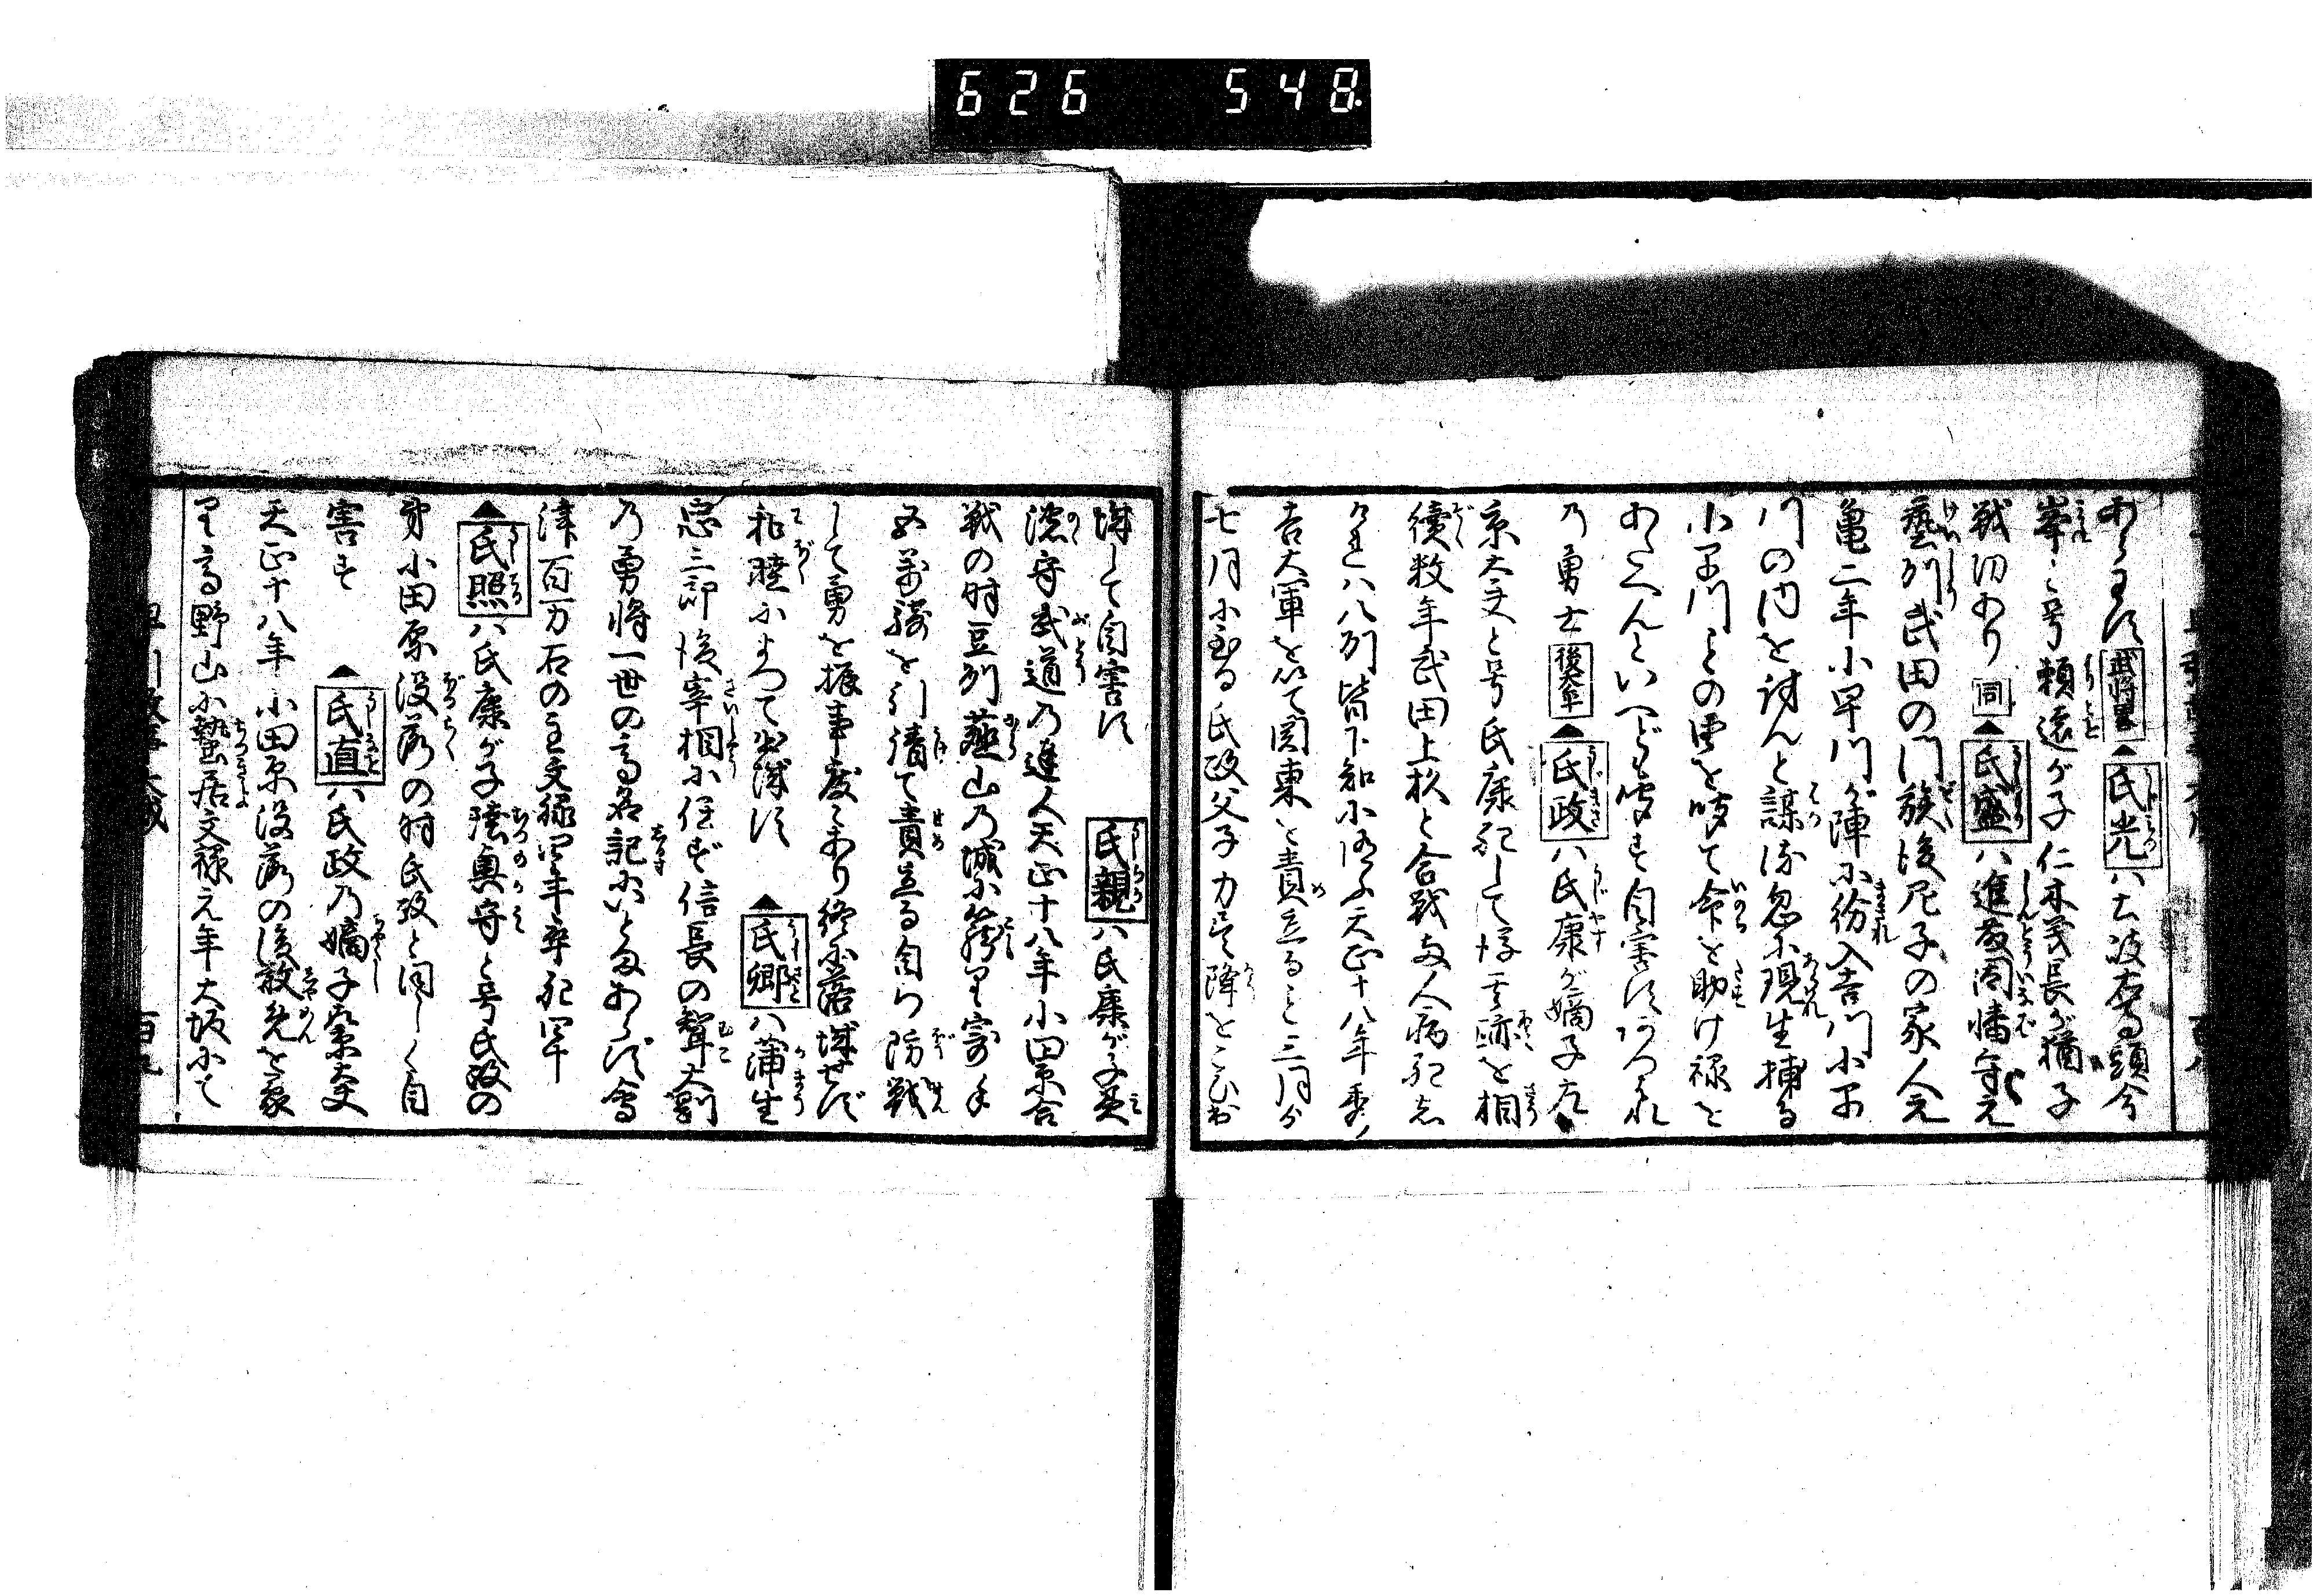 626 548
あらます 武将略 ▲氏光ハ土岐右馬頭今
峯と号頼遠が子仁木義長が猶子
戦功あり 同 ▲氏盛ハ進藤因幡守元
藝列武田の門族後尼子の家人元
亀二年小早川が陣に紛入吉川小早
川の内を討んと謀る忽に現生捕る
小早川との勇を感て命を助け禄を
あたへんといへども受ず自害す
乃勇士 後太平 ▲氏政ハ氏康が嫡子左
京大夫と号氏康死して後其跡を相
續数年武田上杉と合戦両人病死し
ければ八列皆下知に随ふ天正十八年秀
吉大軍を以て関東を責ること三月より
七月に至る氏政父子力尽降をこひ出
城して自害す 氏親ハ氏康が子美
濃守武道の達人天正十八年小田原合
戦の時豆列韮山の城に籠り寄手
五萬騎を引請て責ること自ら防戦
して勇を振事度々あり終に落城せず
和睦によつて出城す ▲氏郷ハ蒲生
忠三郎後宰相に任ず信長の聟大剛
乃勇将一世の高名記にいとまあらず會
津百万石の主文禄四年卒死四十
▲氏照ハ氏康が子陸奥守と号氏政の
弟小田原没落の時氏政と同しく自
害す ▲氏直ハ氏政乃嫡子左京大夫
天正十八年小田原没落の後赦免を蒙
り高野山に蟄居文禄元年大坂にて